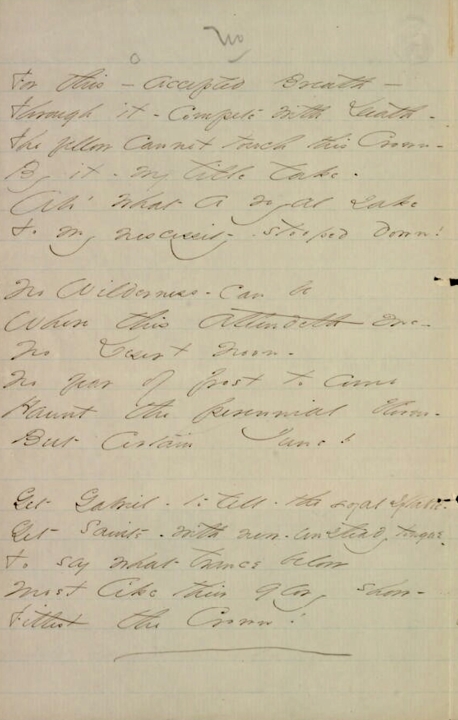 For this – accepted Breath –
Through it – Compete with Death –
The fellow Cannot touch this Crown –
By it – my title take –
Ah, what a royal sake
To my necessity – stooped down!
No Wilderness – Can be
Where this Attendeth me –
No Desert Noon –
No fear of frost to come
Haunt the perennial bloom –
But Certain June!
Get Gabriel – to tell – the royal syllable –
Get Saints – with new – unsteady tongue –
To say what trance below
Most like their glory show –
Fittest the Crown!